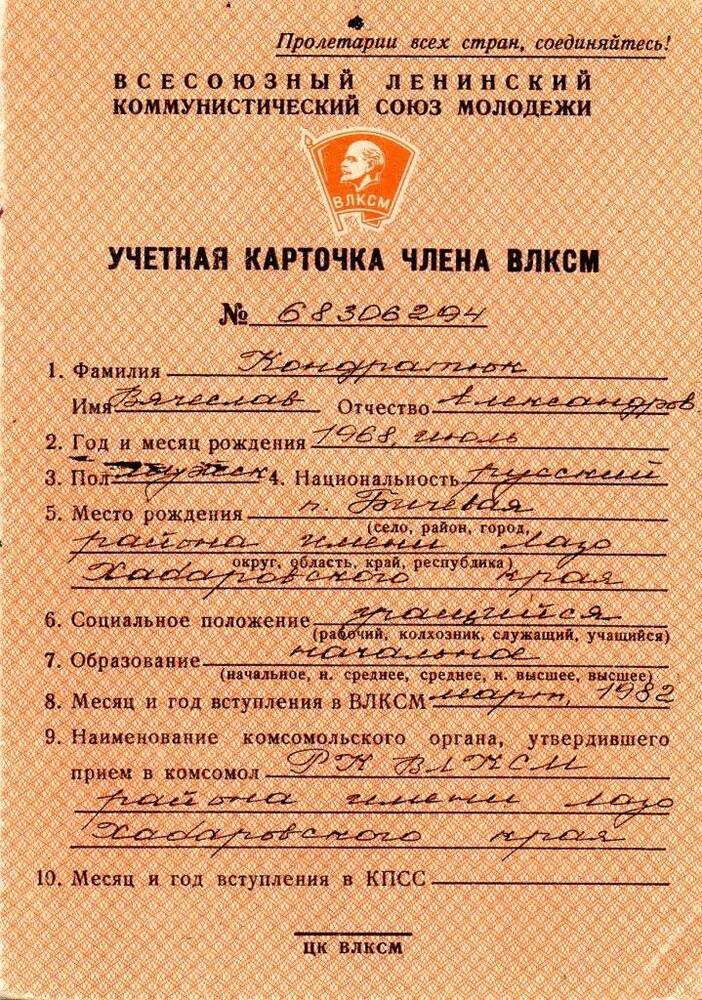 Пролетарии всех стран, соединяйтесь!
ВСЕСОЮЗНЫЙ ЛЕНИНСКИЙ
КОММУНИСТИЧЕСКИЙ СОЮЗ МОЛОДЕЖИ
ВЛКСМ
УЧЕТНАЯ КАРТОЧКА ЧЛЕНА ВЛКСМ
№ 68306294
1. Фамилия Кондратюк
Имя Вячеслав Отчество Александров.
2. Год и месяц рождения 1968, июль
3. Пол мужск 4. Национальность русский
5. Место рождения п. Бичевая
(село, район, город,
района имени Лазо
округ, область, край, республика)
Хабаровского края
6. Социальное положение учащийся
(рабочий, колхозник, служащий, учащийся)
7. Образование начальное
(начальное, н. среднее, среднее, н. высшее, высшее)
8. Месяц и год вступления в ВЛКСМ март, 1982
9. Наименование комсомольского органа, утвердившего
прием в комсомол РК ВЛКСМ
района имени Лазо
Хабаровского края
10. Месяц и год вступления в КПСС
ЦК ВЛКСМ